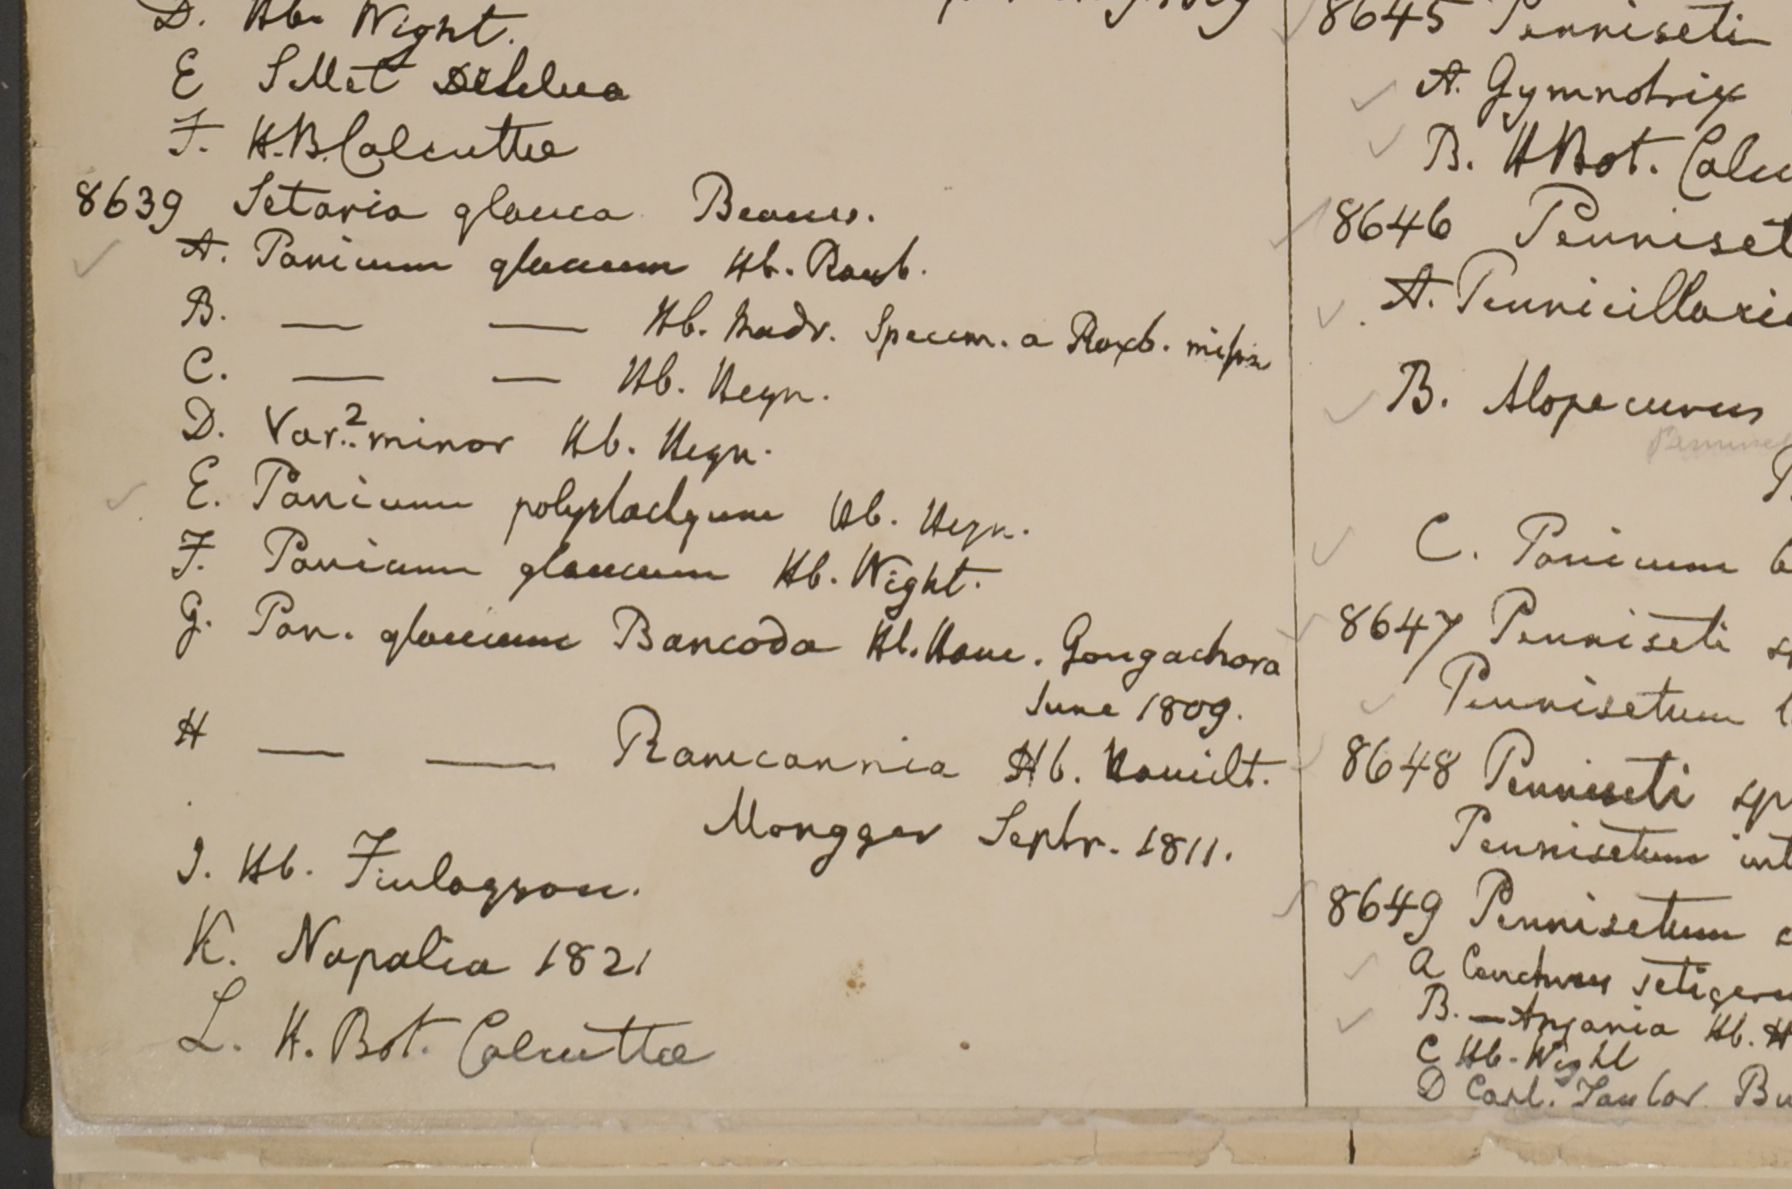 D. Hb. Wight.
E Sillet Desilva
F. H.B. Calcuttae
8639 Setaria glauca Beauv.
A. Panicum glaucum Hb. Roxb.
B. — — Hb. Madr. Specim. a Roxb. missa
C. — — Hb. Heyn.
D. Var. 2 minor Hb. Heyn.
E. Panicum polystachyum Hb. Heyn.
F. Panicum glaucum Hb. Wight.
G. Pan. glaucum Bancoda Hb. Ham. Gongachora
June 1809.
H — — Ramcannia Hb. Hamilt.
Mongger Septr. 1811.
I. Hb. Finlayson.
K. Napalia 1821
L. H. Bot. Calcuttae
8645 Penniseti
A. Gymnotrix
B. H Bot. Calcu
8646 Penniset
A. Pennicillaria
B. Alopecurus
C. Panicum
8647 Penniseti
Pennisetum
8648 Penniseti sp
Pennisetum int
8649 Pennisetum
A Cenchrus setigeru
B. — Anjania Hb. H
C Hb. Wight
D Carl. Taylor Bu